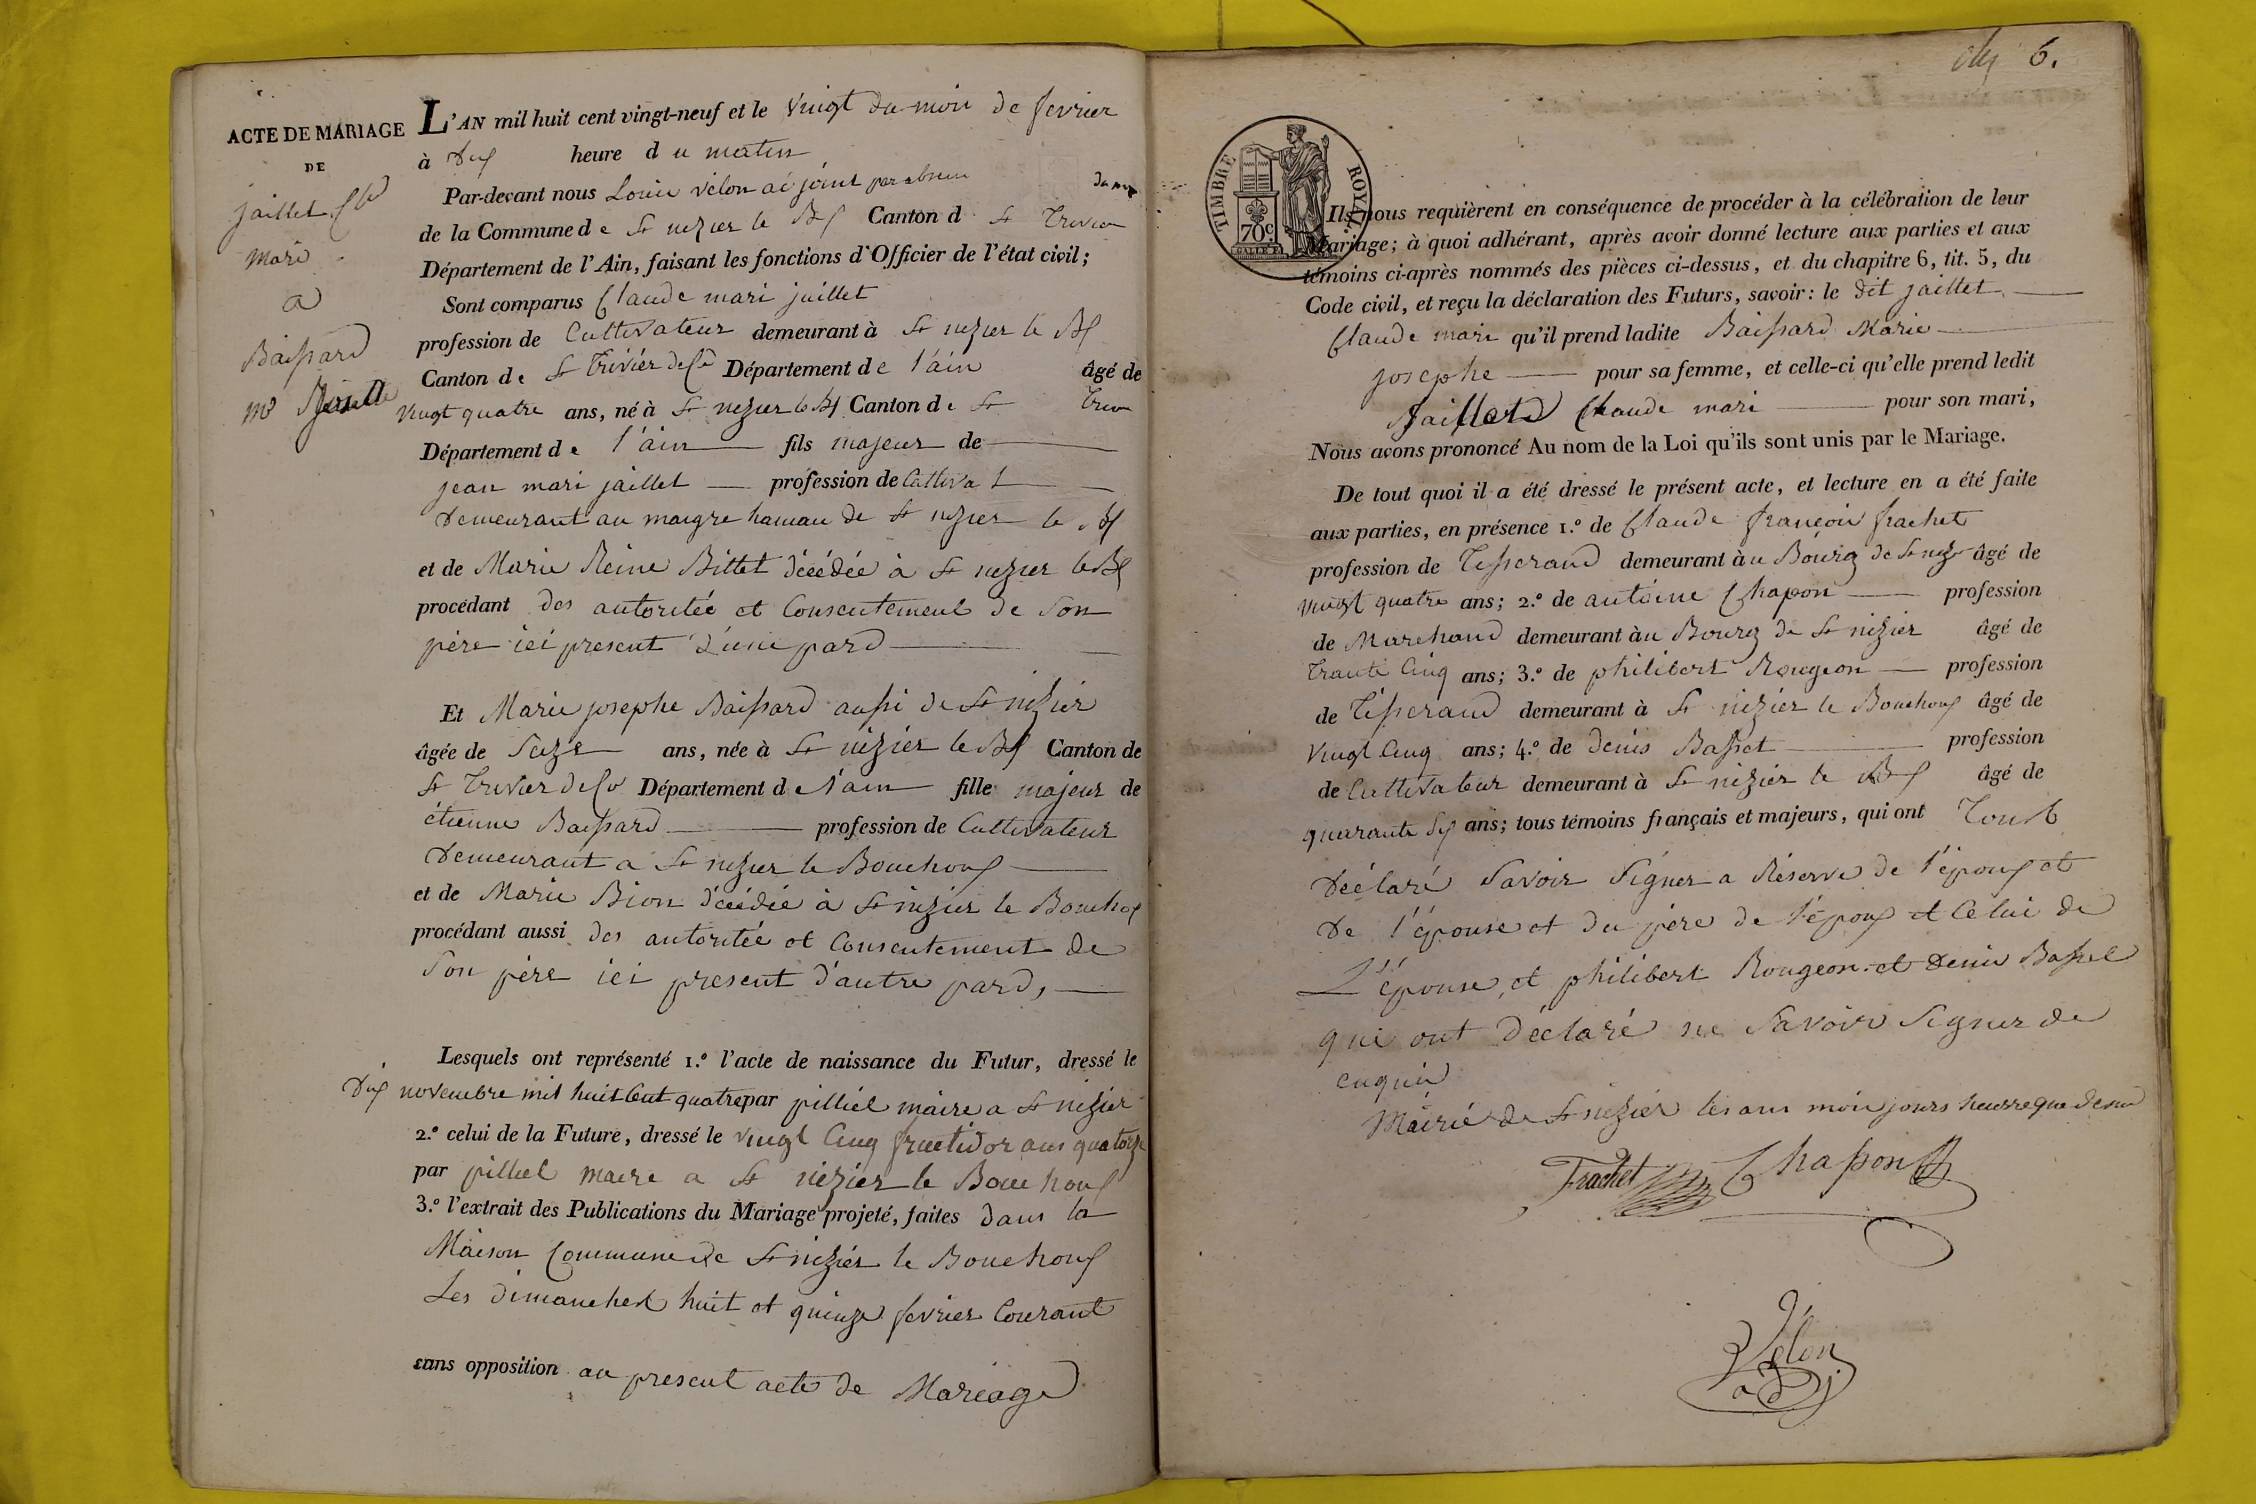 ACTE DE MARIAGE
DE
jaillet Cde
mari
a
Baissard
L'AN mil huit cent vingt-neuf et le vingt du moir de fevrier
à Dix heure du matin
Par-devant nous Louir vélon adjoint par absence du mre
de la Commune de St nezier le Bx Canton d St Trivier
Département de l'Ain, faisant les fonctions d'Officier de l'état civil;
Sont comparus Claude mari jaillet
profession de Cultivateur demeurant à St nezier le Bx
Canton de St Trivier de Ce Département de l'ain âgé de
vingt quatre ans, né à St nezier le Bx Canton de St Trivier
Département de l'ain fils majeur de
jean mari jaillet profession de Cultivat
Demeurant au maigre hamau de St nezier le Bx
et de Marie Reine Billet décédée à St nezier le Bx
procédant des autoritée et Consentement de son
père ici present d'une pard
Et Marie josephe Baissard aussi de St nizier
âgée de Seize ans, née à St nizier le Bx Canton de
St Trivier de Co Département de l'ain fille majeur de
étienne Baissard profession de Cultivateur
Demeurant a St nezier le Bouchoux
et de Marie Bion décédée à St nizier le Bouchox
procédant aussi des autoritée et Consentement de
Son père ici present d'autre pard,
Lesquels ont représenté 1.º l'acte de naissance du Futur, dressé le
Dix novembre mil huit Cent quatre par pilliel maire a St nizier
2.º celui de la Future, dressé le vingt Cinq fructidor ans quatorze
par pilliel maire a St nizier le Bouchoux
3.º l'extrait des Publications du Mariage projeté, faites dans la
Maison Commune de St nizier le Bouchoux
Les dimanches huit et quinze fevrier Courant
sans opposition au present acte de Mariage
6.
TIMBRE ROYAL
70c
Ils nous requièrent en conséquence de procéder à la célébration de leur
Mariage; à quoi adhérant, après avoir donné lecture aux parties et aux
témoins ci-après nommés des pièces ci-dessus, et du chapitre 6, tit. 5, du
Code civil, et reçu la déclaration des Futurs, savoir: le dit jaillet
Claude mari qu'il prend ladite Baissard Marie
josephe pour sa femme, et celle-ci qu'elle prend ledit
Jaillet Claude mari pour son mari,
Nous avons prononcé Au nom de la Loi qu'ils sont unis par le Mariage.
De tout quoi il a été dressé le présent acte, et lecture en a été faite
aux parties, en présence 1.º de Claude françoir frachet
profession de Tisserand demeurant àu Bourg de St nizr âgé de
vingt quatre ans; 2.º de antoine Chapon profession
de Marchand demeurant àu Bourg de St nizier âgé de
Trante Cinq ans; 3.º de philibert Rougeon profession
de Tisserand demeurant à St nizier le Bouchoux âgé de
vingt Cinq ans; 4.º de denis Basset profession
de Cultivateur demeurant à St nizier le Bx âgé de
quarante Six ans; tous témoins français et majeurs, qui ont Tous
Déclaré Savoir Signer a Réserve de l'époux et
De l'épouse et du père de l'époux et Celui de
L'épouse, et philibert Rougeon et Denis Basset
qui ont Déclaré ne Savoir Signer de
enquir
Mairie de St nizier les ans moir jours heurre que dessus
Frachet Chapon
Vélon
adj